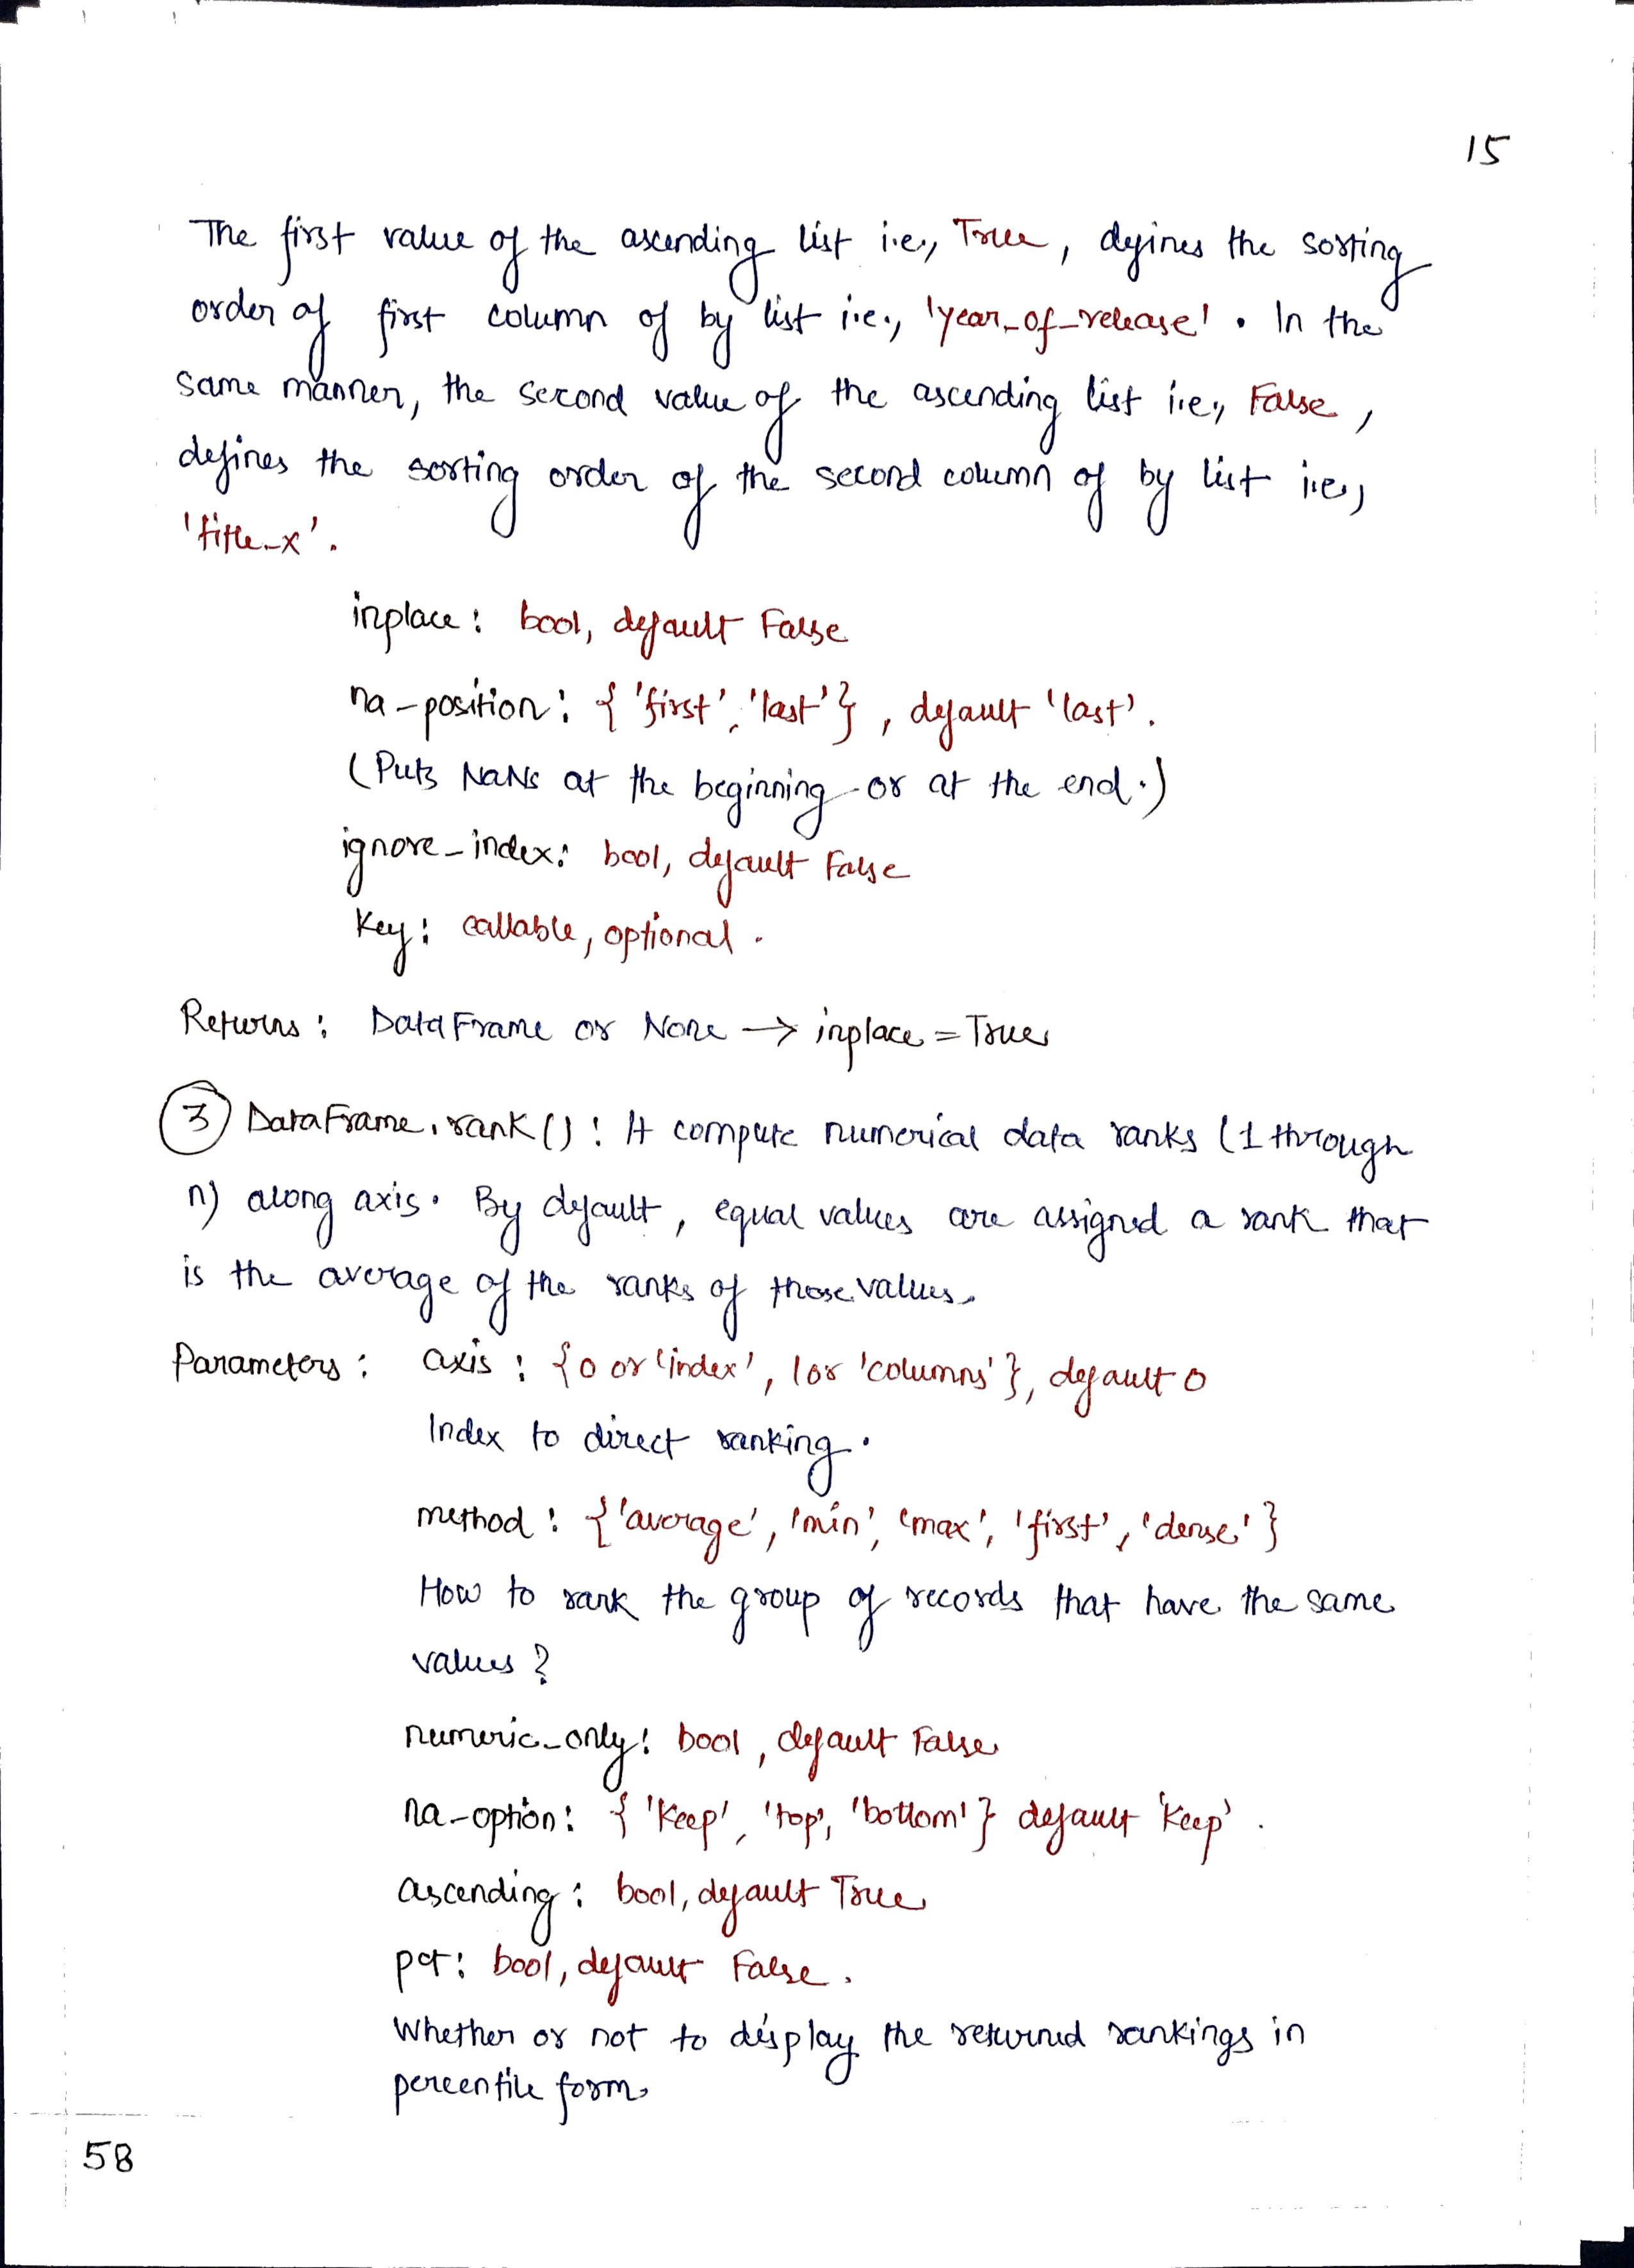 15
The first value of the ascending list i.e., True, defines the sorting
order of first column of by list i.e., 'year_of_release'. In the
same manner, the second value of the ascending list i.e., False,
defines the sorting order of the second column of by list i.e.,
'title_x'.
inplace: bool, default False
na-position: {'first', 'last'}, default 'last'.
(Puts NaNs at the beginning or at the end.)
ignore_index: bool, default False
Key: callable, optional.
Returns: DataFrame or None → inplace = True
3 DataFrame.rank(): It compute numerical data ranks (1 through
n) along axis. By default, equal values are assigned a rank that
is the average of the ranks of those values.
Parameters: axis: {0 or 'index', 1 or 'columns'}, default 0
Index to direct ranking.
method: {'average', 'min', 'max', 'first', 'dense'}
How to rank the group of records that have the same
values?
numeric_only: bool, default False
na-option: {'Keep', 'top', 'bottom'} default 'Keep'.
ascending: bool, default True
pct: bool, default False.
Whether or not to display the returned rankings in
percentile form.
58